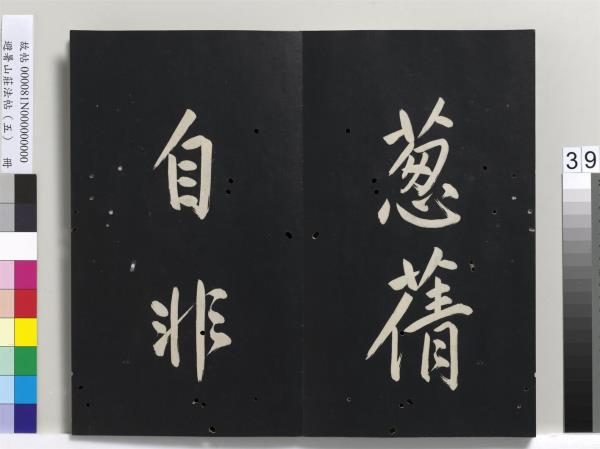 葱蒨
自非
故帖 000081N000000000
避暑山莊法帖（五） 冊
39